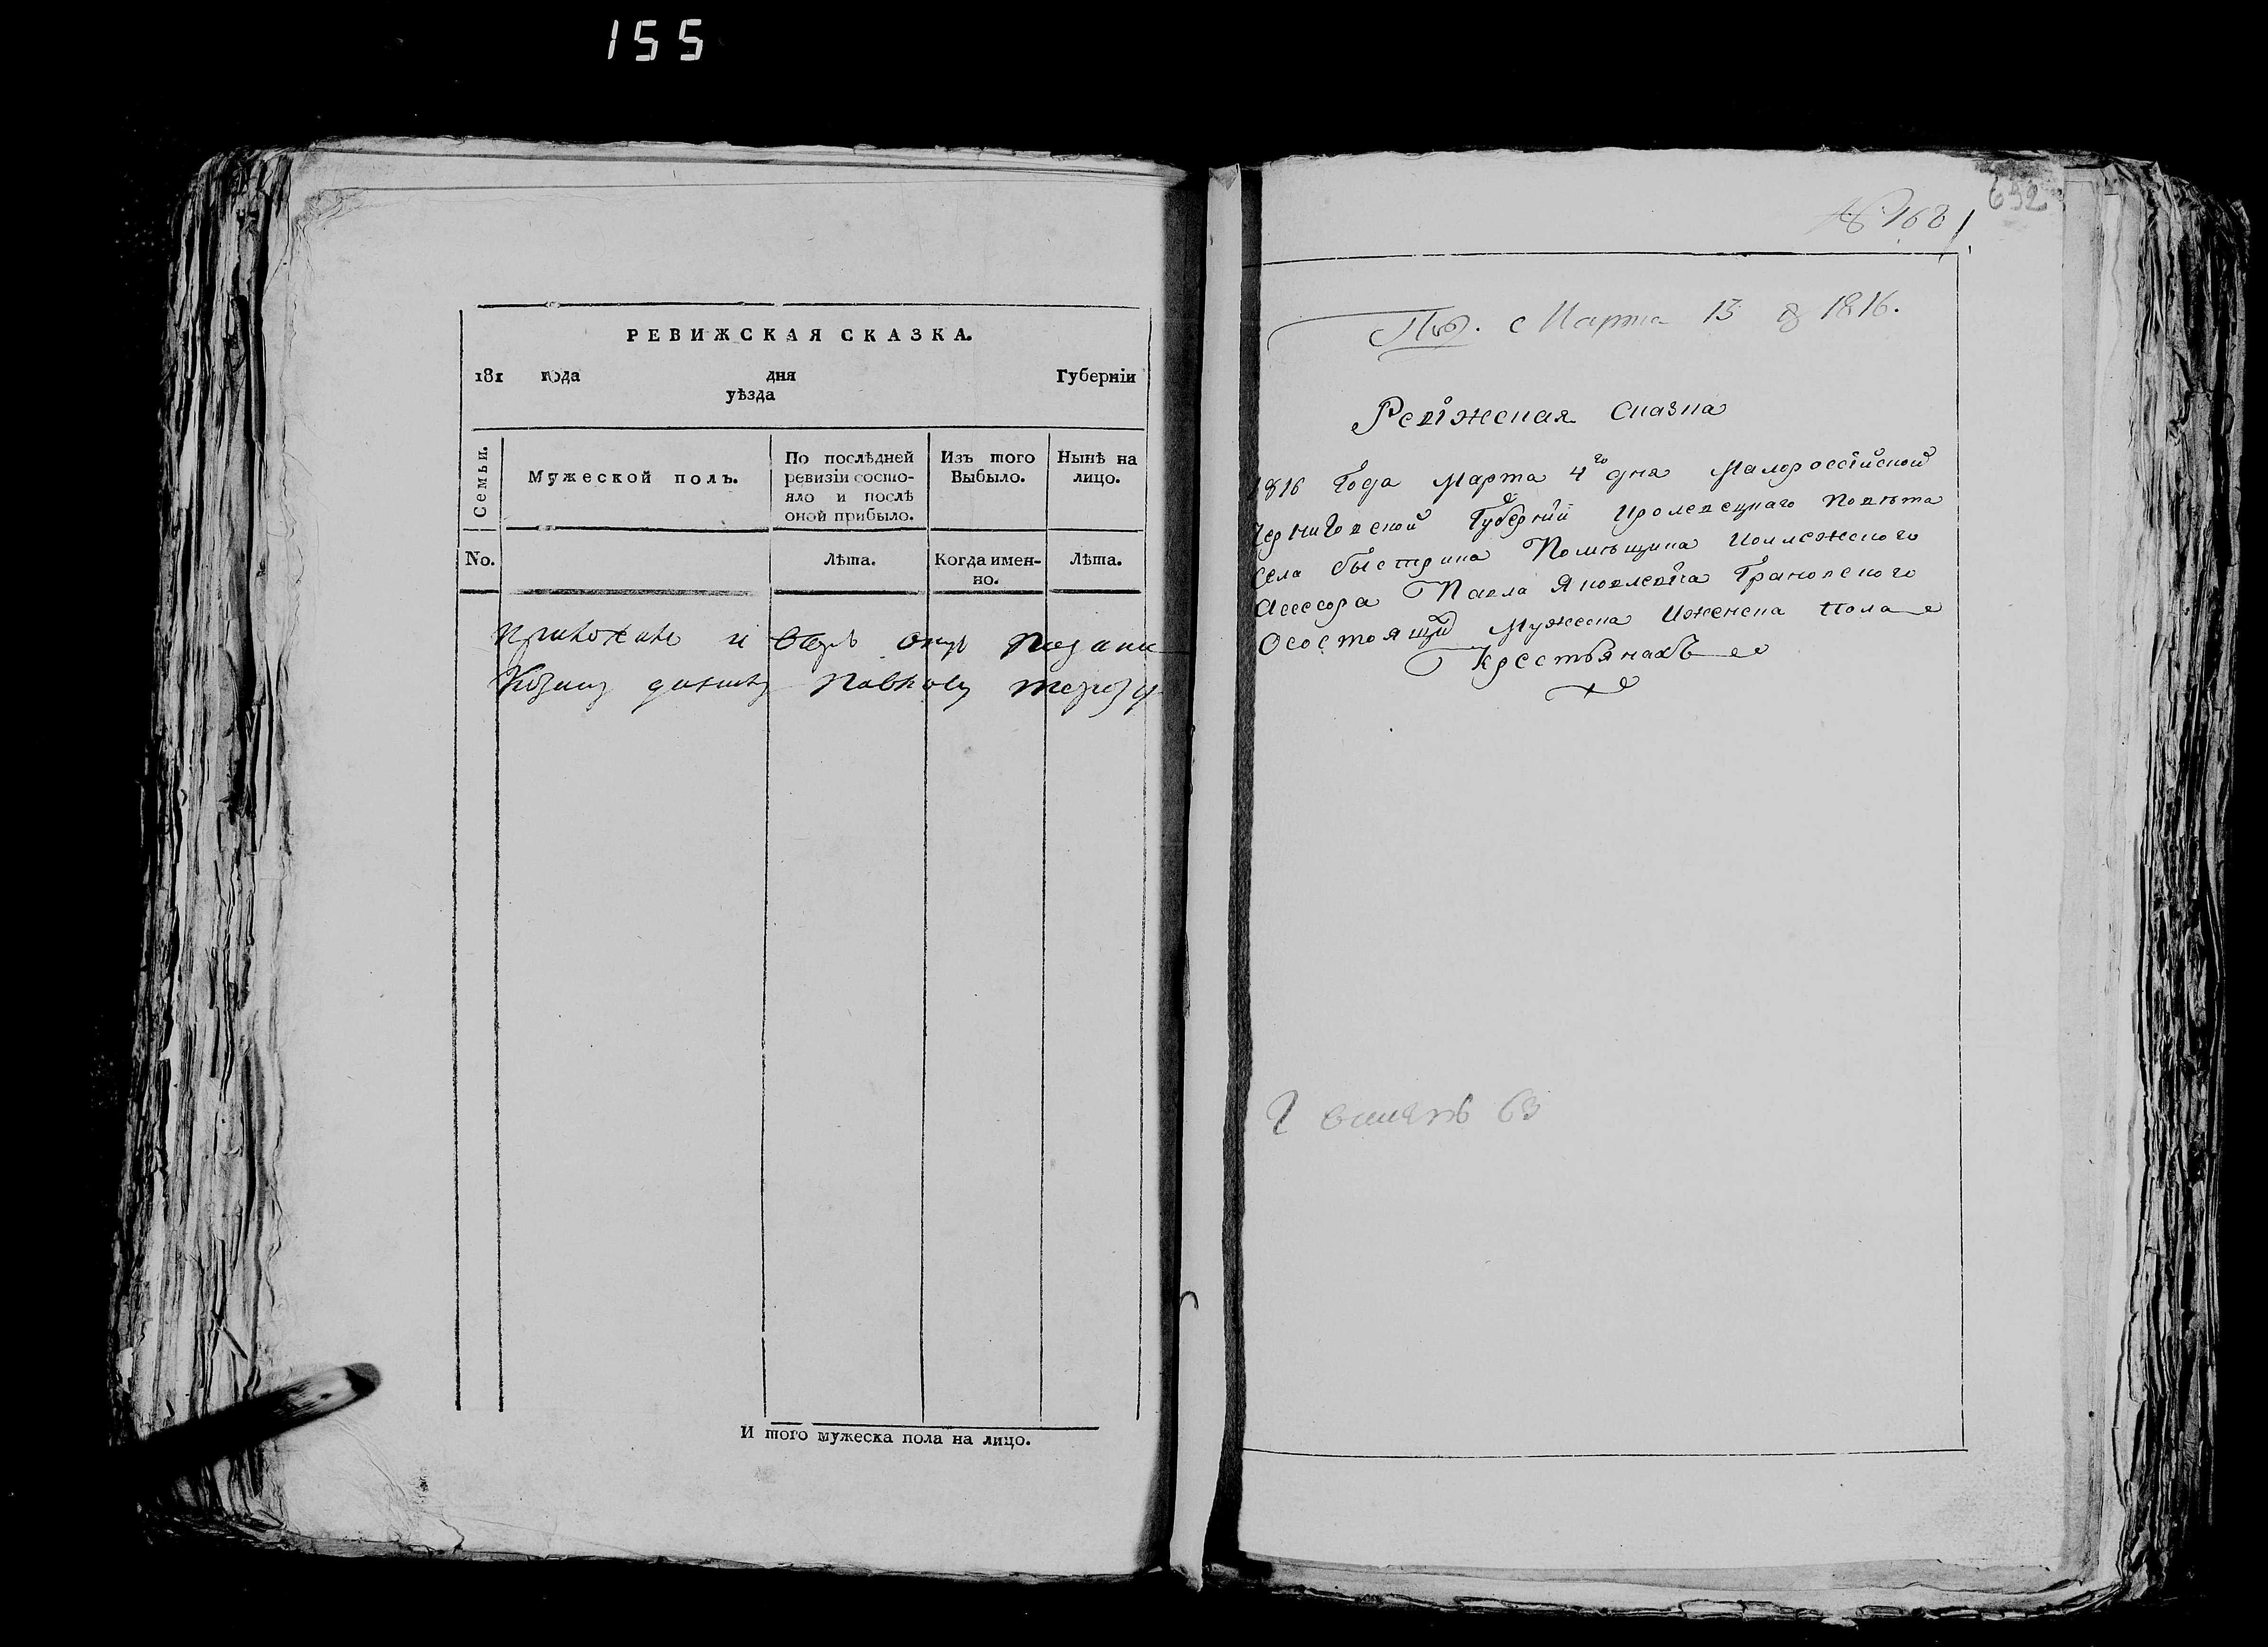 155
РЕВИЖСКАЯ СКАЗКА.
181 года дня Губерніи
уѣзда
Семьи.
Мужеской полъ.
По послѣдней ревизіи состояло и послѣ оной прибыло.
Изъ того Выбыло.
Нынѣ на лицо.
No.
Лѣта.
Когда именно.
Лѣта.
И того мужеска пола на лицо.
692
№ 168
Марта 13 1816.
Ревіжская сказка
1816 Года Марта 4го дня Малороссійской
Черниговской Губерніи Кролевецкаго Повѣта
села быстрика Помѣщика Коллежского
Асессора Павла Яковлевича Грановского
Осостоящи Мужеска Иженска Пола
Крестьянахъ